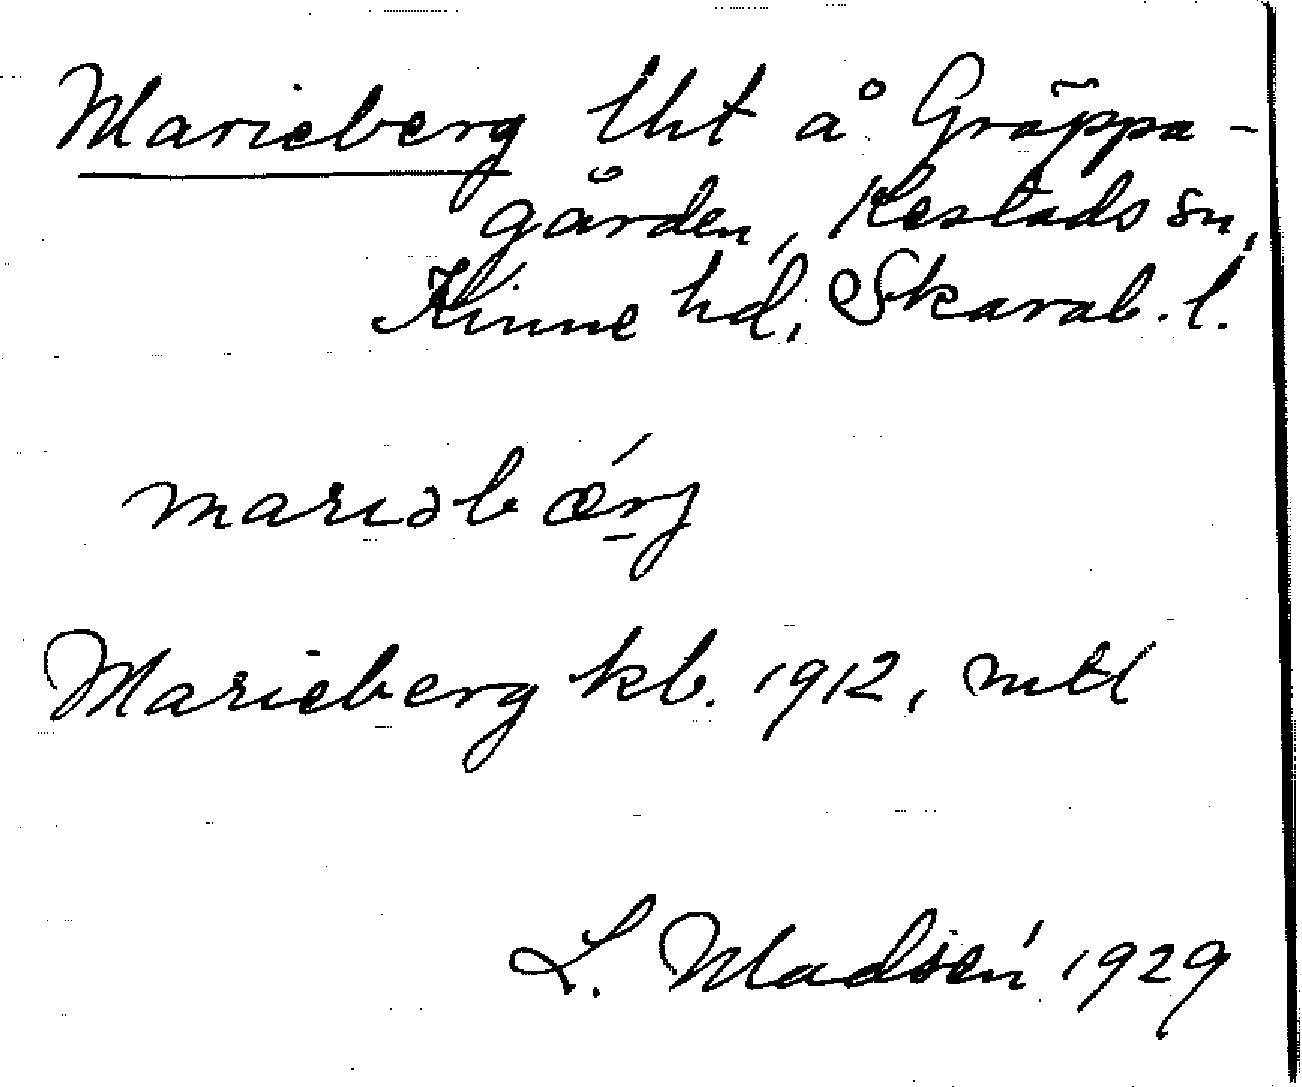 Marieberg lht å Gräppa-
gården, Kestads sn,
Kinne hd, Skarab. l.
mariəbǽrj
Marieberg kb. 1912, mtl
L. Madsén 1929